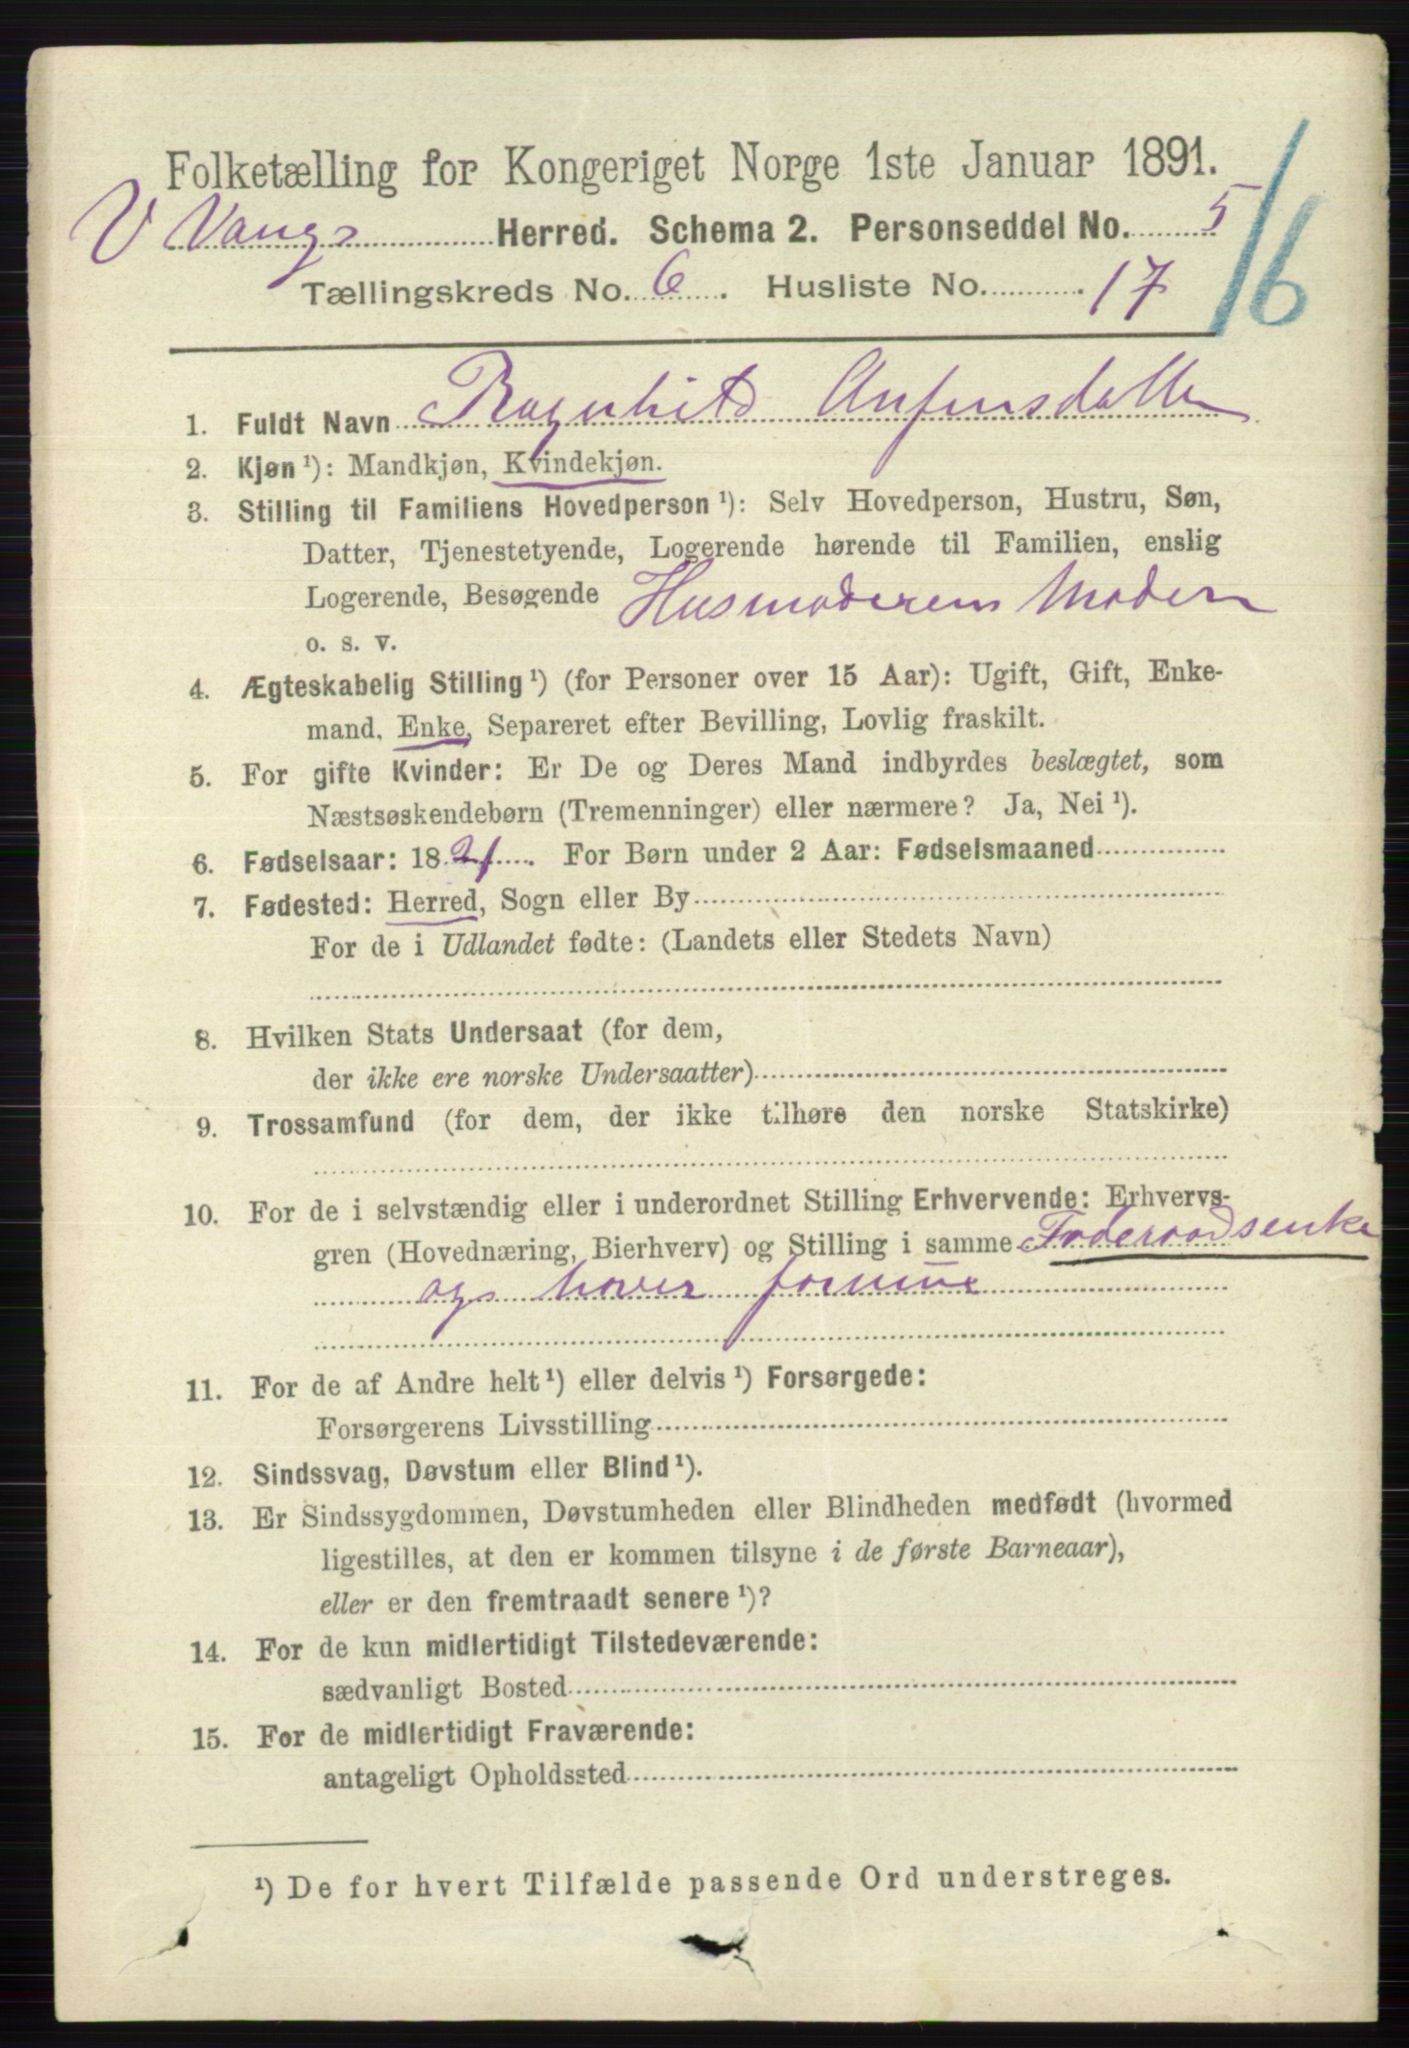 Folketælling for Kongeriget Norge 1ste Januar 1891.
V Vangs Herred. Schema 2. Personseddel No. 5
Tællingskreds No. 6. Husliste No. 17
16
1. Fuldt Navn Ragnhild Anfinsdatter
2. Kjøn ¹): Mandkjøn, Kvindekjøn.
3. Stilling til Familiens Hovedperson ¹): Selv Hovedperson, Hustru, Søn,
Datter, Tjenestetyende, Logerende hørende til Familien, enslig
Logerende, Besøgende Husmoderens Moder
o. s. v.
4. Ægteskabelig Stilling ¹) (for Personer over 15 Aar): Ugift, Gift, Enke-
mand, Enke, Separeret efter Bevilling, Lovlig fraskilt.
5. For gifte Kvinder: Er De og Deres Mand indbyrdes beslægtet, som
Næstsøskendebørn (Tremenninger) eller nærmere? Ja, Nei ¹).
6. Fødselsaar: 1821. For Børn under 2 Aar: Fødselsmaaned
7. Fødested: Herred, Sogn eller By
For de i Udlandet fødte: (Landets eller Stedets Navn)
8. Hvilken Stats Undersaat (for dem,
der ikke ere norske Undersaatter)
9. Trossamfund (for dem, der ikke tilhøre den norske Statskirke)
10. For de i selvstændig eller i underordnet Stilling Erhvervende: Erhvervs-
gren (Hovednæring, Bierhverv) og Stilling i samme Foderaadsenke
og haver formue
11. For de af Andre helt ¹) eller delvis ¹) Forsørgede:
Forsørgerens Livsstilling
12. Sindssvag, Døvstum eller Blind ¹).
13. Er Sindssygdommen, Døvstumheden eller Blindheden medfødt (hvormed
ligestilles, at den er kommen tilsyne i de første Barneaar),
eller er den fremtraadt senere ¹)?
14. For de kun midlertidigt Tilstedeværende:
sædvanligt Bosted
15. For de midlertidigt Fraværende:
antageligt Opholdssted
¹) De for hvert Tilfælde passende Ord understreges.